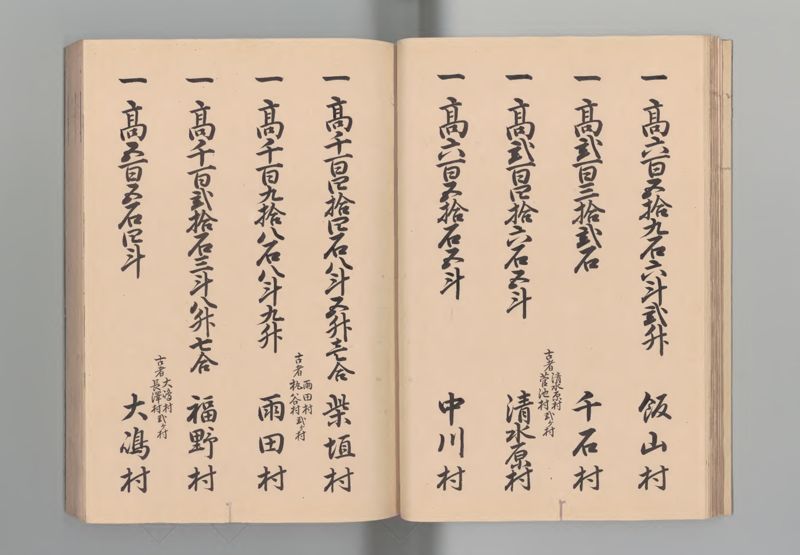 一 高六百五拾九石六斗弐升 飯山村
一 高弐百三拾弐石 千石村
古者 清水原村 菅池村 弐ケ村
一 高弐百四拾六石五斗 清水原村
一 高六百五拾石五斗 中川村
一 高千百四拾四石八斗五升壱合 柴垣村
古者 雨田村 桃谷村 弐ケ村
一 高千百九拾八石八斗九升 雨田村
一 高千百弐拾石三斗八升七合 福野村
古者 大嶋村 長澤村 弐ケ村
一 高五百五石四斗 大嶋村